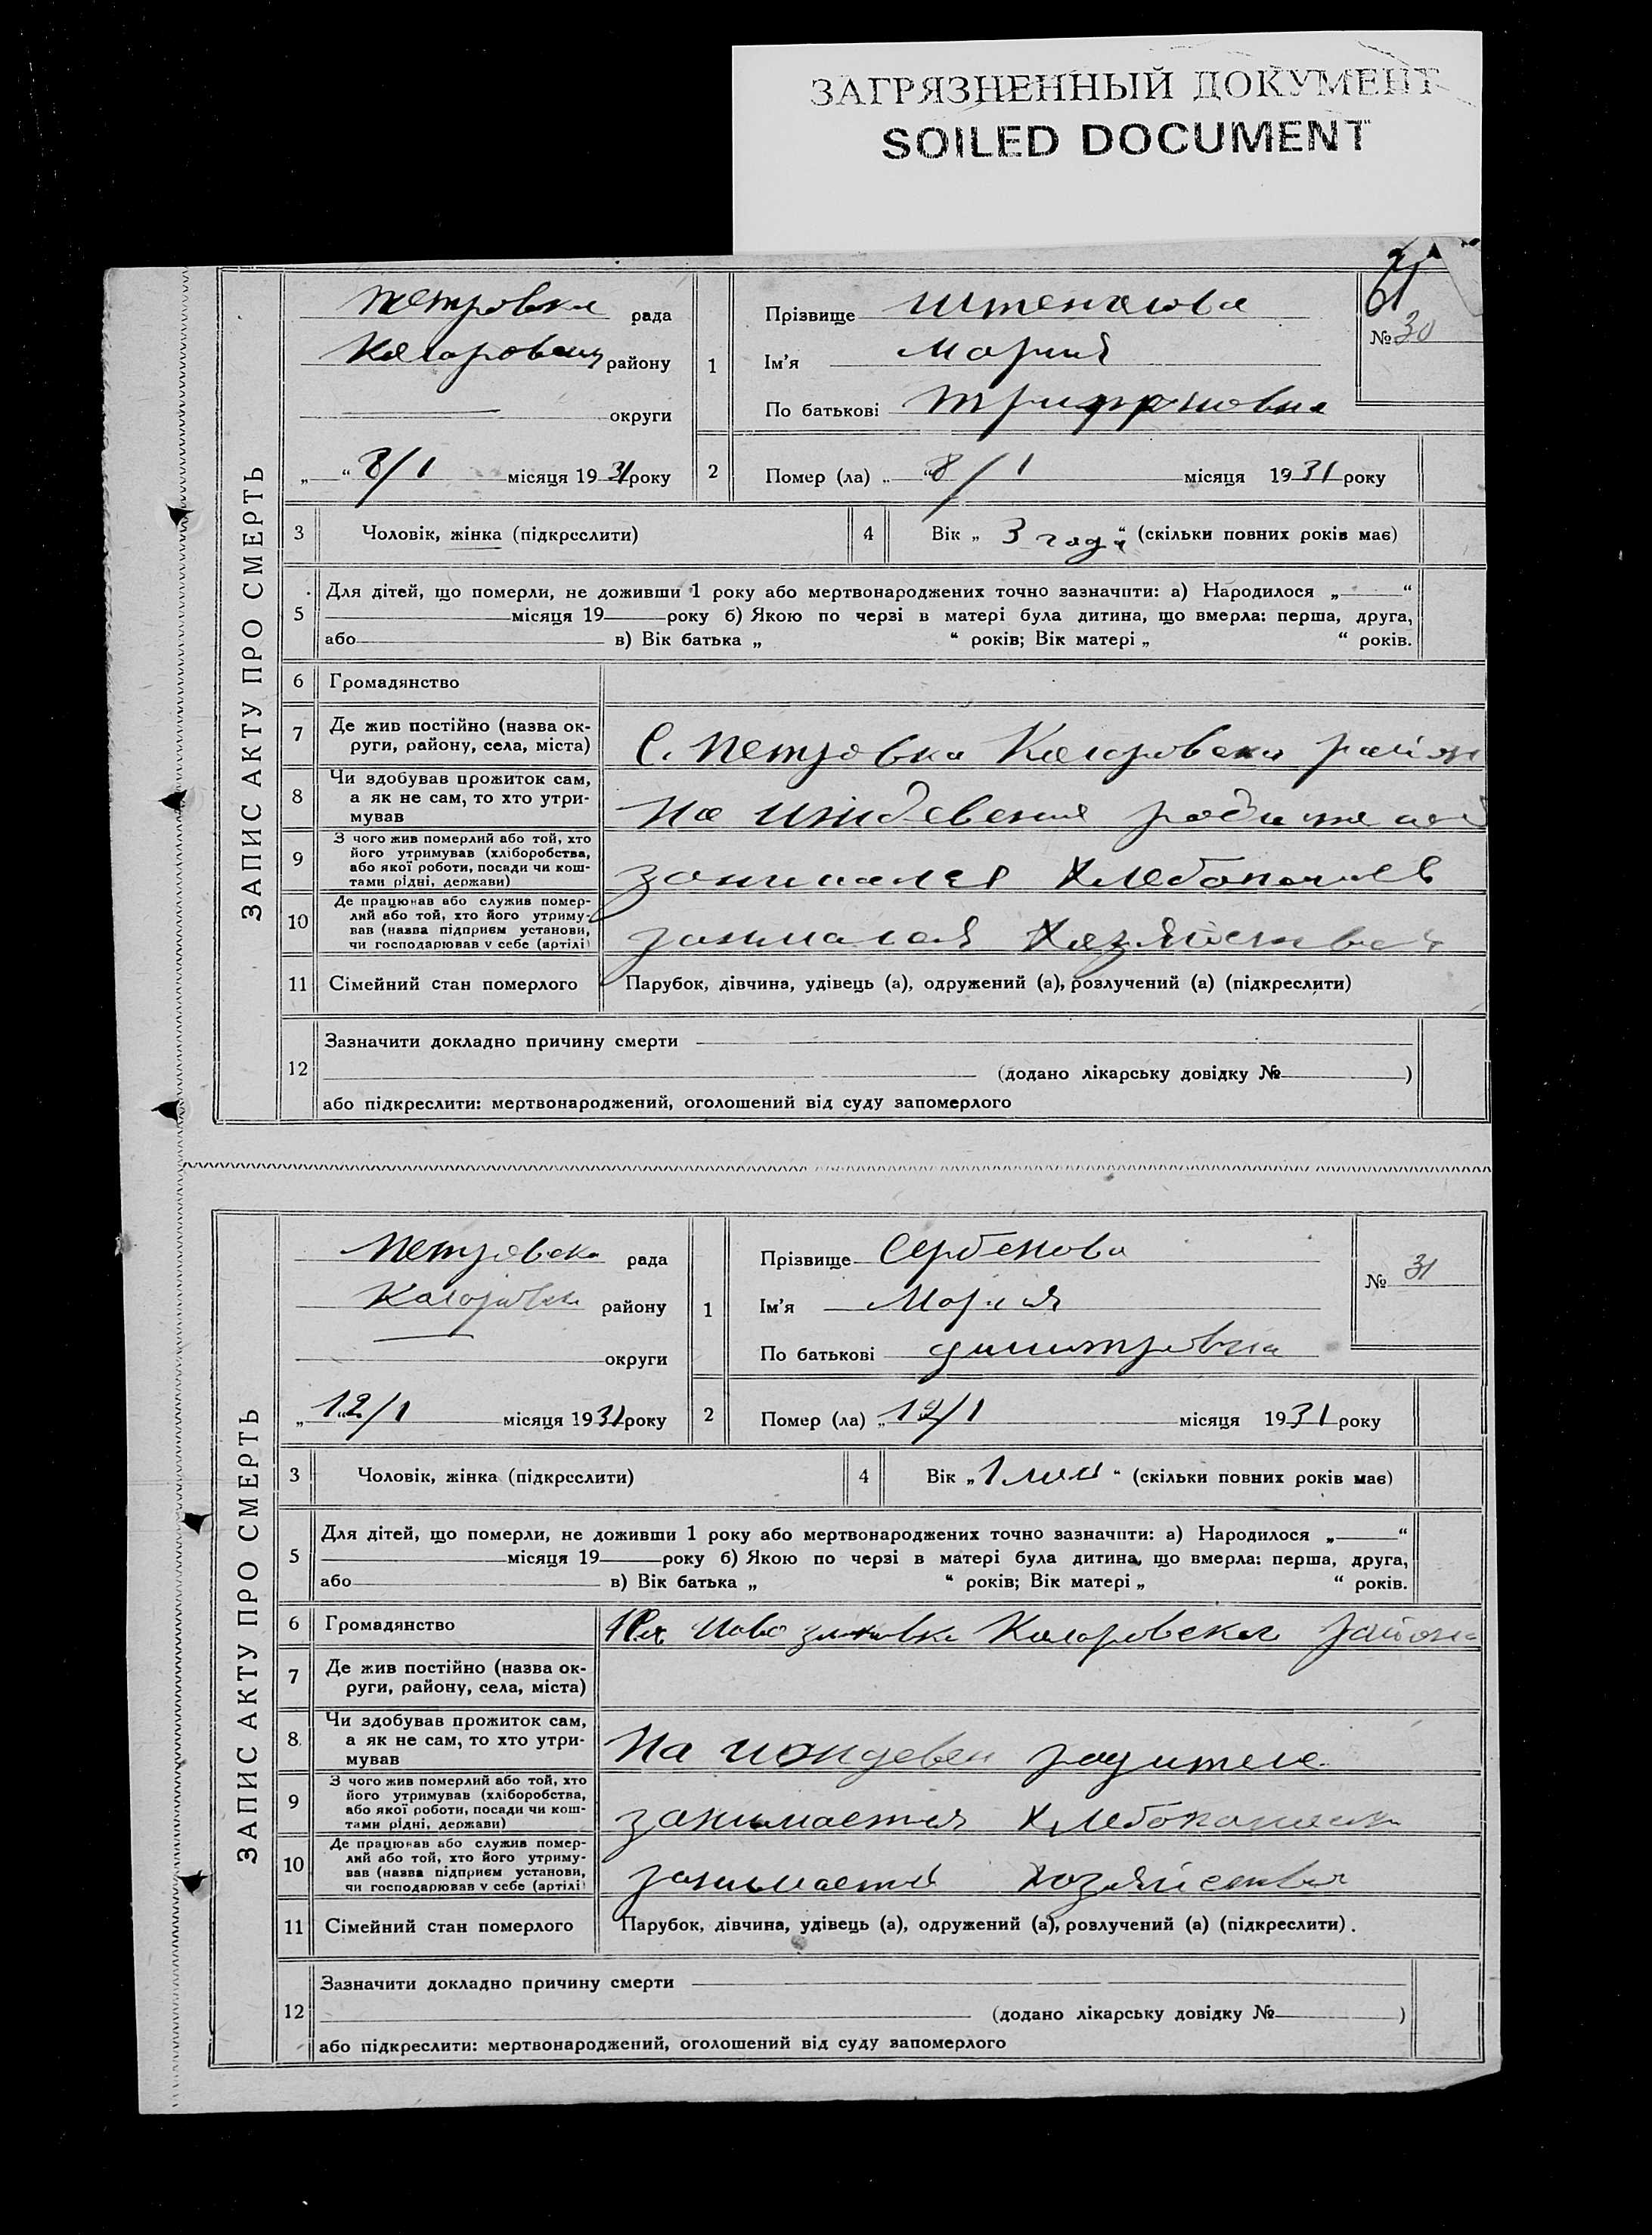 ЗАГРЯЗНЕННЫЙ ДОКУМЕНТ
SOILED DOCUMENT
ЗАПИС АКТУ ПРО СМЕРТЬ
Петровка рада
району
округи
„ “ 8/1 місяця 1931 року
1
Прізвище
Ім'я Мария
По батькові Трифоновна
№ 30
2 Помер (ла) „ “ 8/1 місяця 1931 року
3 Чоловік, жінка (підкреслити)
4 Вік „ 3 года “ (скільки повних років має)
5 Для дітей, що померли, не доживши 1 року або мертвонароджених точно зазначити: а) Народилося „ “
місяця 19 року б) Якою по черзі в матері була дитина, що вмерла: перша, друга,
або в) Вік батька „ “ років; Вік матері „ “ років.
6 Громадянство
7 Де жив постійно (назва ок-
руги, району, села, міста) С. Петровка район
8 Чи здобував прожиток сам,
а як не сам, то хто утри-
мував На
9 З чого жив померлий або той, хто
його утримував (хліборобства,
або якої роботи, посади чи кош-
тами рідні, держави) занимался
10 Де працював або служив помер-
лий або той, хто його утриму-
вав (назва підприєм установи,
чи господарював у себе (артілі) занимался
11 Сімейний стан померлого Парубок, дівчина, удівець (а), одружений (а), розлучений (а) (підкреслити)
12 Зазначити докладно причину смерти
(додано лікарську довідку № )
або підкреслити: мертвонароджений, оголошений від суду запомерлого
ЗАПИС АКТУ ПРО СМЕРТЬ
Петровска рада
району
округи
„ 12/1 місяця 1931 року
1
Прізвище Сербенова
Ім'я Мария
По батькові димитровна
№ 31
2 Помер (ла) „ 12/1 місяця 1931 року
3 Чоловік, жінка (підкреслити)
4 Вік „ 1 “ (скільки повних років має)
5 Для дітей, що померли, не доживши 1 року або мертвонароджених точно зазначити: а) Народилося „ “
місяця 19 року б) Якою по черзі в матері була дитина, що вмерла: перша, друга,
або в) Вік батька „ “ років; Вік матері „ “ років.
6 Громадянство Коларовска района
7 Де жив постійно (назва ок-
руги, району, села, міста)
8 Чи здобував прожиток сам,
а як не сам, то хто утри-
мував На родителе
9 З чого жив померлий або той, хто
його утримував (хліборобства,
або якої роботи, посади чи кош-
тами рідні, держави) занимается
10 Де працював або служив помер-
лий або той, хто його утриму-
вав (назва підприєм установи,
чи господарював у себе (артілі) занимается
11 Сімейний стан померлого Парубок, дівчина, удівець (а), одружений (а), розлучений (а) (підкреслити).
12 Зазначити докладно причину смерти
(додано лікарську довідку № )
або підкреслити: мертвонароджений, оголошений від суду запомерлого